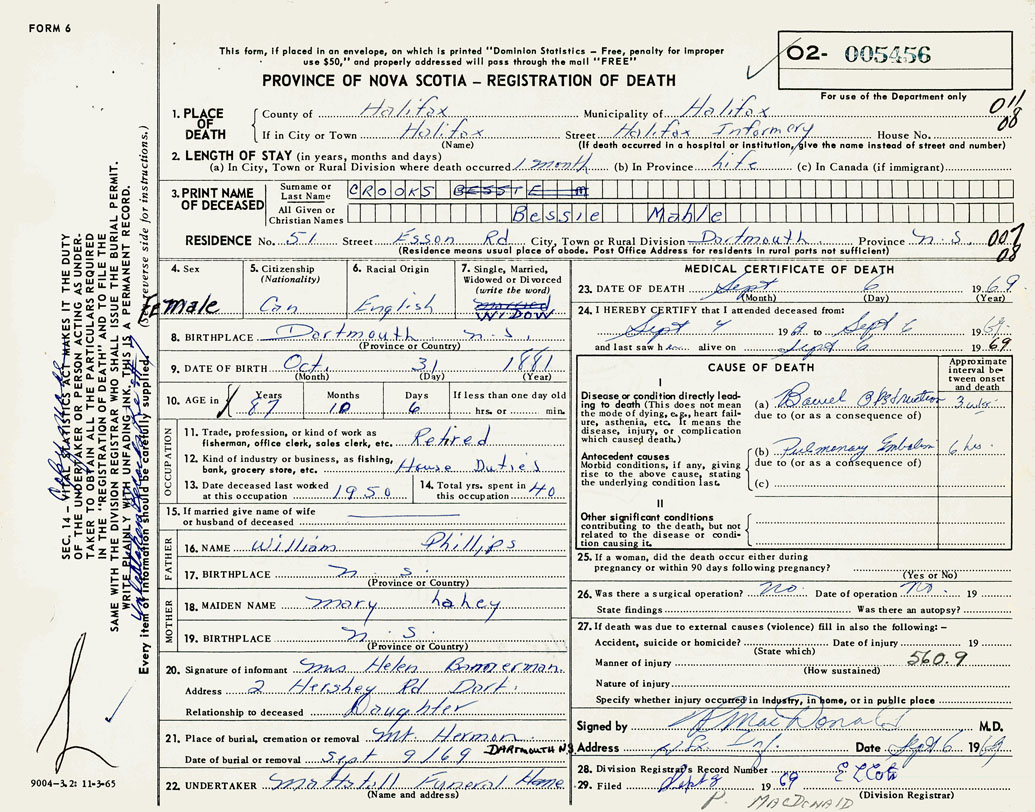 FORM 6
This form, if placed in an envelope, on which is printed "Dominion Statistics — Free, penalty for improper
use $50," and properly addressed will pass through the mail "FREE"
PROVINCE OF NOVA SCOTIA — REGISTRATION OF DEATH
O2- 005456
For use of the Department only
011
08
1. PLACE OF DEATH
County of Halifax Municipality of Halifax
If in City or Town Halifax Street Halifax Infirmery House No.
(Name) (If death occurred in a hospital or institution, give the name instead of street and number)
2. LENGTH OF STAY (in years, months and days)
(a) In City, Town or Rural Division where death occurred 1 month (b) In Province Life (c) In Canada (if immigrant)
3. PRINT NAME OF DECEASED
Surname or Last Name CROOKS BESSIE M
All Given or Christian Names Bessie Mable
RESIDENCE No. 51 Street Esson Rd City, Town or Rural Division Dartmouth Province N.S. 007
(Residence means usual place of abode. Post Office Address for residents in rural parts not sufficient) 08
4. Sex FEMale
5. Citizenship (Nationality) Can
6. Racial Origin English
7. Single, Married, Widowed or Divorced (write the word) Married WIDOW
8. BIRTHPLACE Dartmouth N.S.
(Province or Country)
9. DATE OF BIRTH Oct. 31 1881
(Month) (Day) (Year)
10. AGE in Years 87 Months 10 Days 6 If less than one day old hrs. or min.
OCCUPATION
11. Trade, profession, or kind of work as fisherman, office clerk, sales clerk, etc. Retired
12. Kind of industry or business, as fishing, bank, grocery store, etc. House Duties
13. Date deceased last worked at this occupation 1950
14. Total yrs. spent in this occupation 40
15. If married give name of wife or husband of deceased
FATHER
16. NAME William Phillips
17. BIRTHPLACE N.S.
(Province or Country)
MOTHER
18. MAIDEN NAME Mary Lahey
19. BIRTHPLACE N.S.
(Province or Country)
20. Signature of informant Mrs Helen Bannerman
Address 2 Hershey Rd Dart.
Relationship to deceased Daughter
21. Place of burial, cremation or removal Mt Hermon
DARTMOUTH NS
Date of burial or removal Sept 9/69
22. UNDERTAKER Mattatall Funeral Home
(Name and address)
MEDICAL CERTIFICATE OF DEATH
23. DATE OF DEATH Sept 6 1969
(Month) (Day) (Year)
24. I HEREBY CERTIFY that I attended deceased from:
Sept 4 1969 to Sept 6 1969
and last saw her alive on Sept 6 1969
CAUSE OF DEATH
Approximate interval between onset and death
I
Disease or condition directly leading to death (This does not mean the mode of dying, e.g., heart failure, asthenia, etc. It means the disease, injury, or complication which caused death.)
(a) Bowel Obstruction
due to (or as a consequence of)
Antecedent causes
Morbid conditions, if any, giving rise to the above cause, stating the underlying condition last.
(b) Pulmonary Embolism 6 hrs
due to (or as a consequence of)
(c)
II
Other significant conditions contributing to the death, but not related to the disease or condition causing it.
25. If a woman, did the death occur either during pregnancy or within 90 days following pregnancy?
(Yes or No)
26. Was there a surgical operation? No. Date of operation No. 19
State findings Was there an autopsy?
27. If death was due to external causes (violence) fill in also the following:—
Accident, suicide or homicide? Date of injury 19
(State which)
Manner of injury 560.9
(How sustained)
Nature of injury
Specify whether injury occurred in industry, in home, or in public place
Signed by MacDonald M.D.
Address Inf. Date Sept 6 1969
28. Division Registrar's Record Number
29. Filed Sept 8 1969
(Division Registrar)
P. MACDONALD
SEC. 14 — VITAL STATISTICS ACT MAKES IT THE DUTY
OF THE UNDERTAKER OR PERSON ACTING AS UNDER-
TAKER TO OBTAIN ALL THE PARTICULARS REQUIRED
IN THE "REGISTRATION OF DEATH" AND TO FILE THE
SAME WITH THE DIVISION REGISTRAR WHO SHALL ISSUE THE BURIAL PERMIT.
WRITE PLAINLY WITH UNFADING INK. THIS IS A PERMANENT RECORD.
Every item of information should be carefully supplied. (See reverse side for instructions.)
9004-3.2: 11-3-65